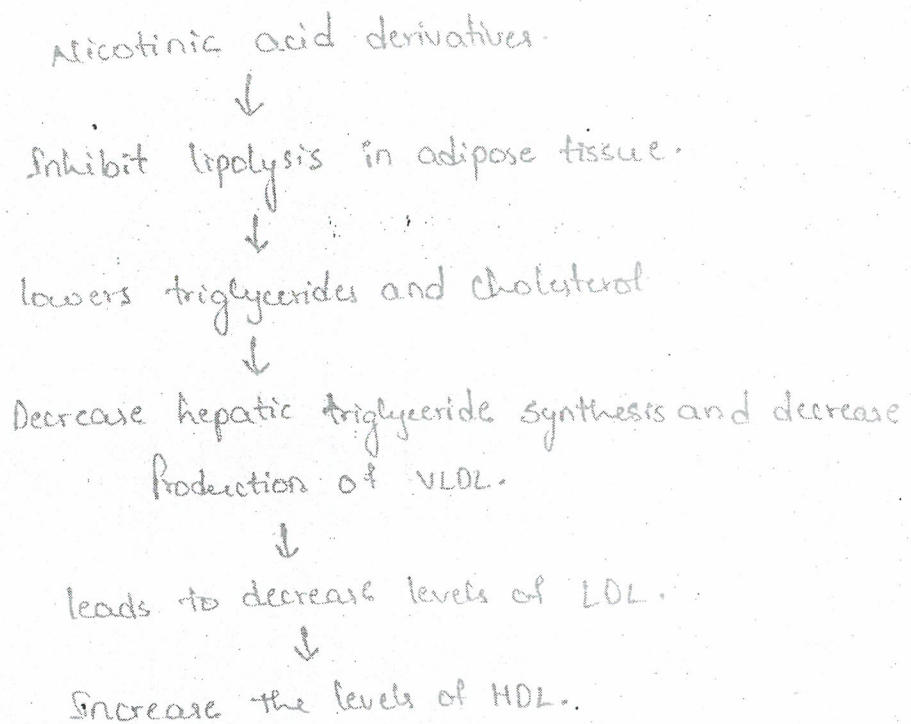 Nicotinic acid derivatives.
↓
Inhibit lipolysis in adipose tissue.
↓
lowers triglycerides and cholesterol
↓
Decrease hepatic triglyceride synthesis and decrease
Production of VLDL.
↓
leads to decrease levels of LDL.
↓
Increase the levels of HDL.